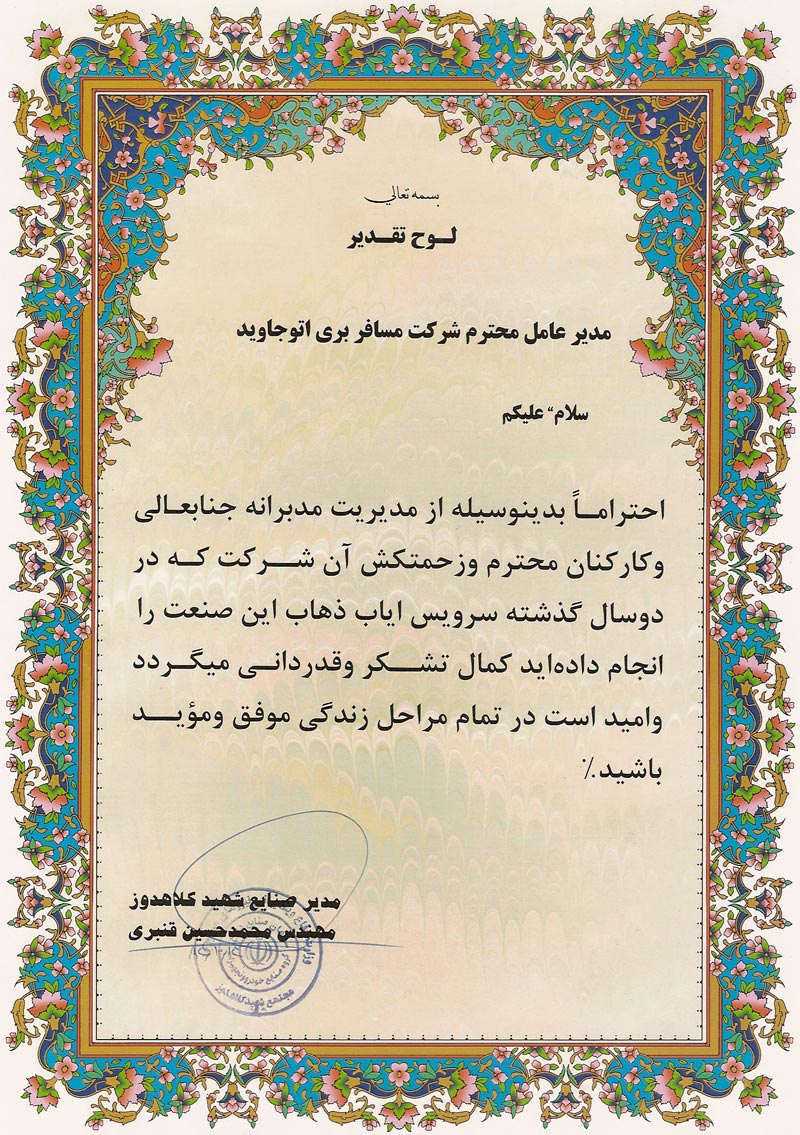 بسمه تعالي
لوح تقدیر
مدیر عامل محترم شرکت مسافر بری اتوجاوید
سلام" علیکم
احتراماً بدینوسیله از مدیریت مدبرانه جنابعالی
وکارکنان محترم وزحمتکش آن شرکت که در
دوسال گذشته سرویس ایاب ذهاب این صنعت را
انجام داده‌اید کمال تشکر وقدردانی میگردد
وامید است در تمام مراحل زندگی موفق ومؤید
باشید.٪
مدیر صنایع شهید کلاهدوز
مهندس محمدحسین قنبری
گروه صنایع خودرو
مجتمع شهید کلاهدوز